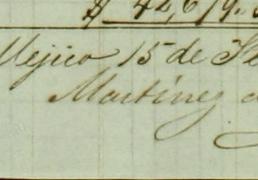 $ 42,619.
Mejico 15 de
Martinez